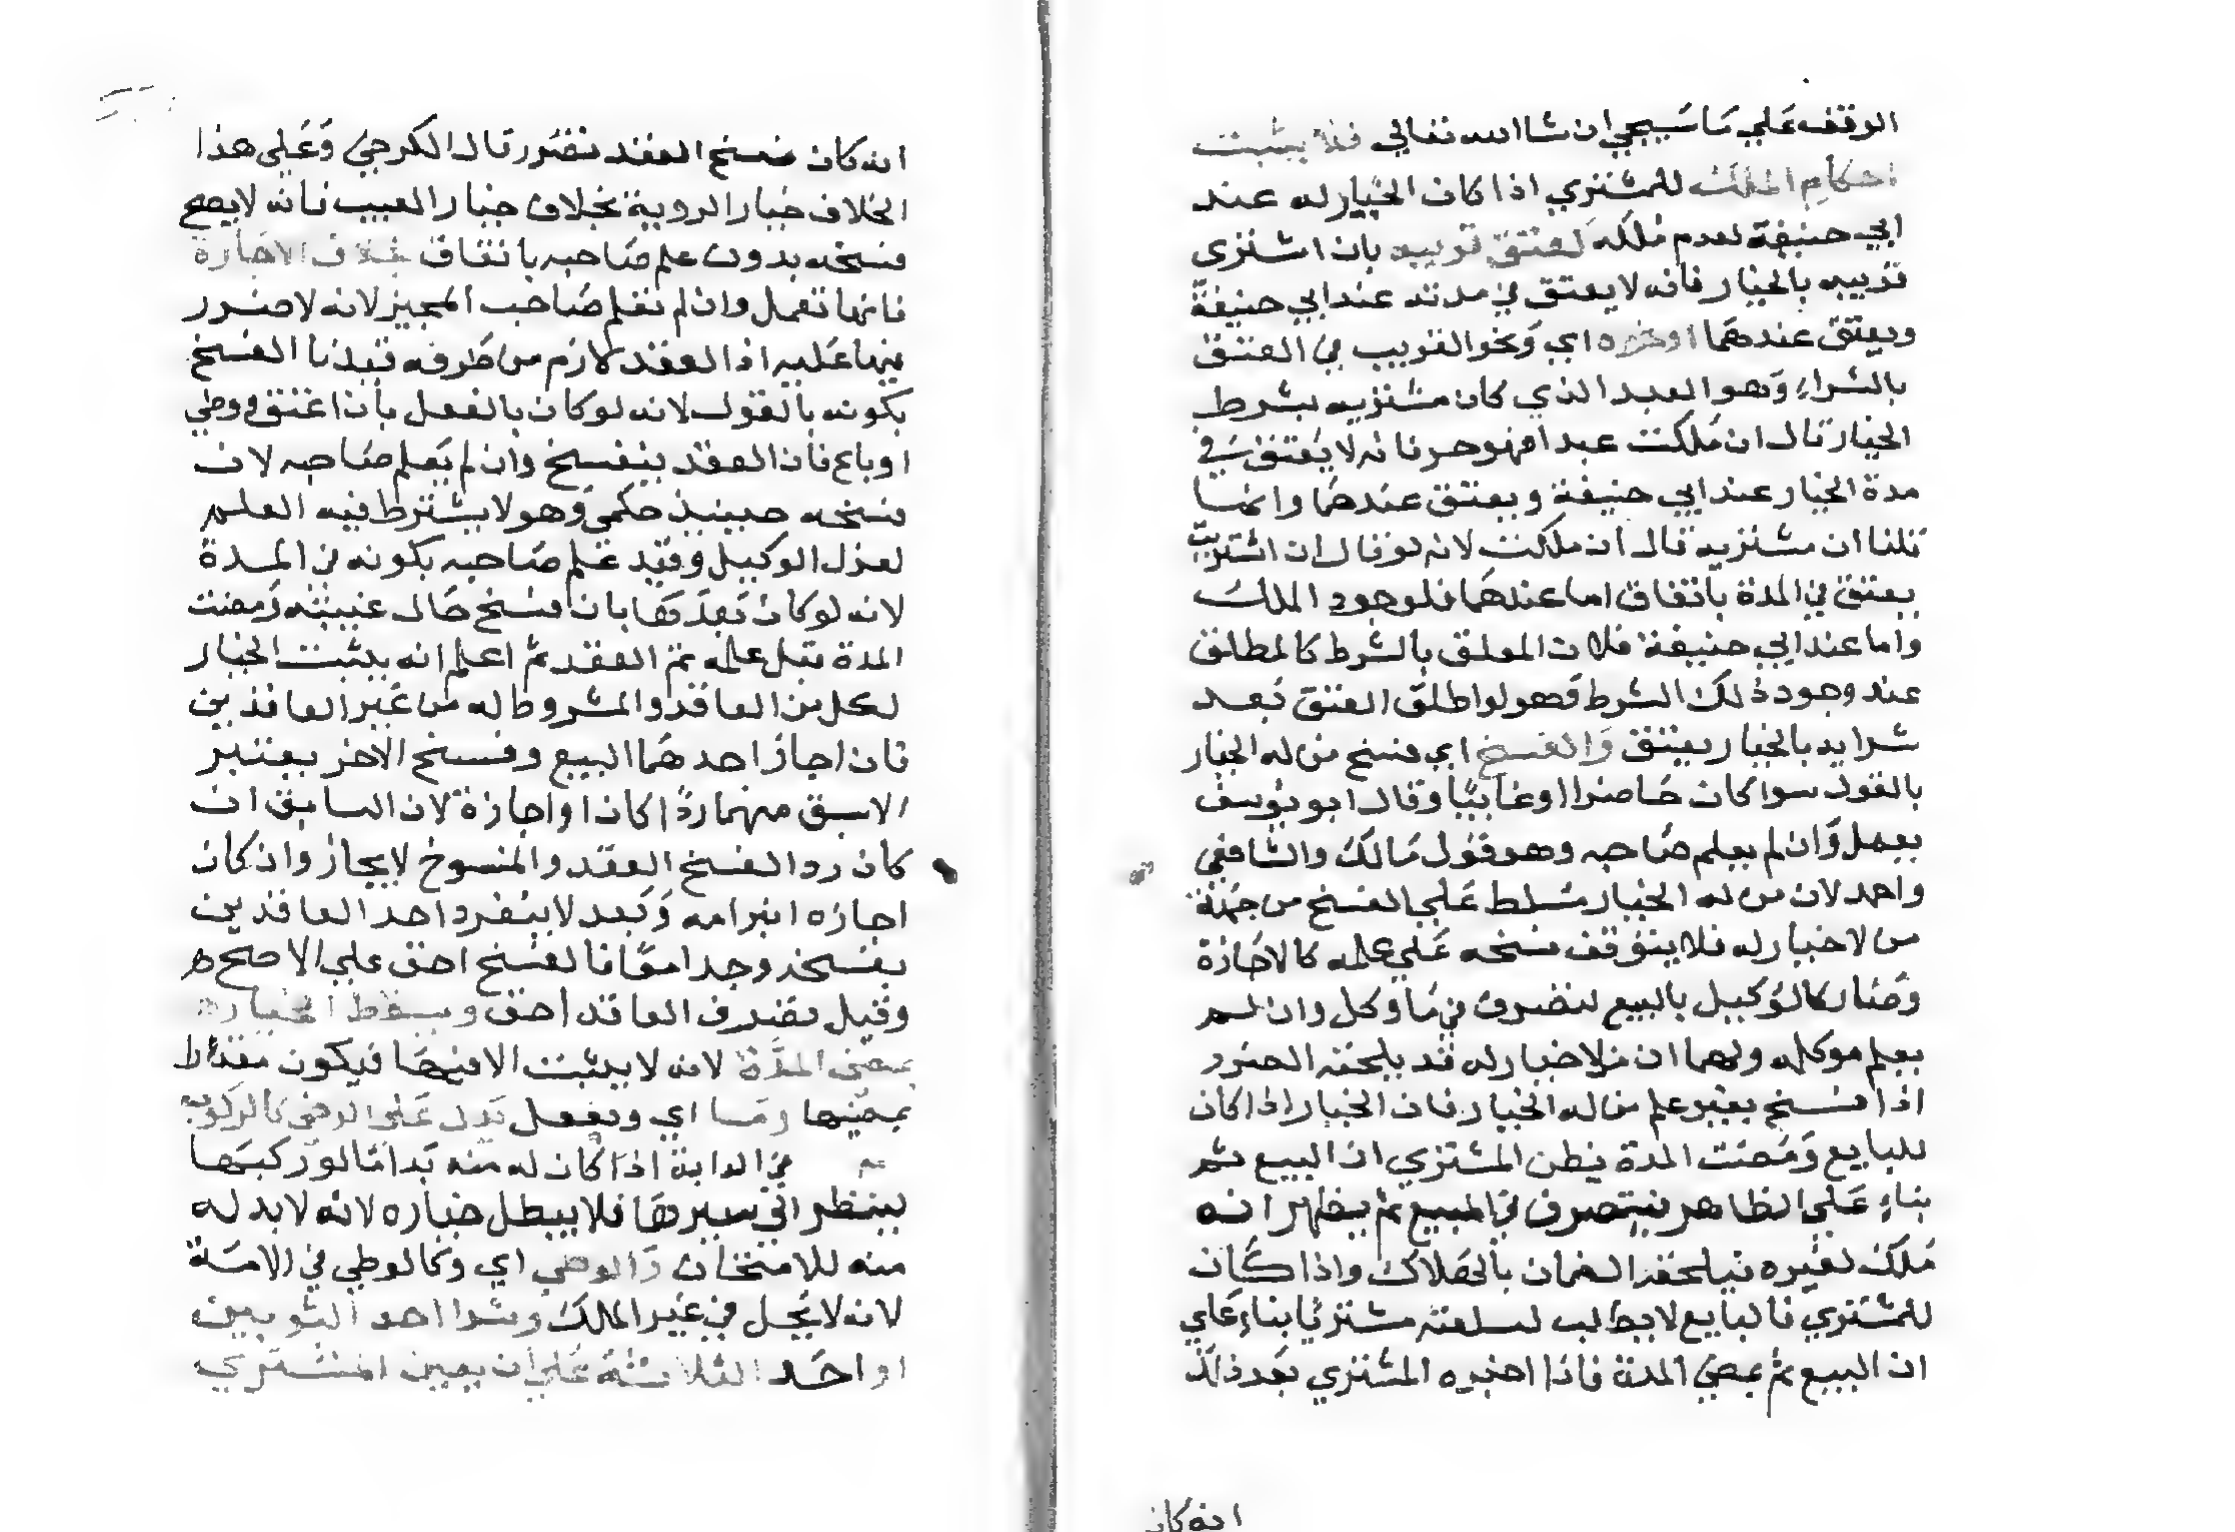 الوقفه علي ما سيجي ان شا الله تعالي فلا يثبت
احكام الملك للمشتري اذا كان الخيار له عند
ابي حنيفة لعدم ملكه لعتق قريبه بان اشتري
قريبه بالخيار فانه لا يعتق في مدته عند ابي حنيفة
ويعتق عندهما اونحوه اي ونحو القريب في العتق
بالشراء وهو العبد الذي كان مشتريه بشرط
الخيار قال ان ملكت عبدا فهو حر فانه لا يعتق في
مدة الخيار عند ابي حنيفة ويعتق عندهما وانما
قلنا ان مشتريه قال ان ملكت لانه لو قال ان اشتريت
يعتق في المدة باتفاق اما عندهما فلوجود الملك
واما عند ابي حنيفة فلان المعلق بالشرط كالمطلق
عند وجود ذلك الشرط فهو لو اطلق العتق بعد
شرايه بالخيار يعتق والفسخ اي فسخ من له الخيار
بالقول سوا كان حاضرا او غايبا وقال ابو يوسف
يعمل وان لم يعلم صاحبه وهو قول مالك والشافعي
واحد لان من له الخيار مسلط علي الفسخ من جهة
من لا خيار له فلا يتوقف فسخه علي علمه كالاجازة
وصار كالوكيل بالبيع لتصرف في ما وكل وان لم
يعلم موكله ولهما ان من لا خيار له قد يلحقه الضرر
اذا فسخ بغير علم من له الخيار فان الخيار اذا كان
للبايع ومضت المدة فظن المشتري ان البيع تم
بناء علي الظاهر فيتصرف في المبيع ثم يظهر انه
ملك لغيره فيلحقه الضمان بالهلاك واذا كان
للمشتري فالبايع لا يطلب لسلعته مشتريا بناء علي
ان البيع تم بمضي المدة فاذا اخبره المشتري بعد ذلك
انه كان
انه كان فسخ العقد تضرر قال الكرخي وعلي هذا
الخلاف خيار الروية بخلاف خيار العيب فانه لا يصح
فسخه بدون علم صاحبه باتفاق بخلاف الاجازة
فانها تعمل وان لم يعلم صاحب المجيز لانه لا ضرر
فيها عليه اذ العقد لازم من طرفه قيدنا الفسخ
بكونه بالقول لانه لو كان بالفعل بان اعتق او وطي
او باع فان العقد ينفسخ وان لم يعلم صاحبه لان
فسخه حينيذ حكمي وهو لا يشترط فيه العلم
لعزل الوكيل وقيد علم صاحبه بكونه في المدة
لانه لو كان بعدها بان فسخ حال غيبته ومضت
المدة قبل علمه تم العقد ثم اعلم انه يثبت الخيار
لكل من العاقد والمشروط له من غير العاقدين
فان اجاز احدهما البيع وفسخ الاخر يعتبر
الاسبق منهما ردا كان او اجازة لان السابق ان
كان ردا لفسخ العقد والمنسوخ لا يجاز وان كان
اجازه انبرامه وبعد لا ينفرد احد العاقدين
بفسخه وجدا معا فالفسخ احق علي الاصح
وقيل تصرف العاقد احق ويسقط الخيار
بمضي المدة لانه لا يثبت الا فيها فيكون مقداط
بمضيها وما اي وبفعل يدل علي الرضي كالركوب
في الدابة اذا كان له منه بد اما لو ركبها
لينظر الي سيرها فلا يبطل خياره لانه لا بد له
منه للامتحان والوطي اي وكالوطي في الامة
لانه لا يحل في غير الملك وشرا احد الثوبين
او احد الثلاثة علي ان يعين المشتري